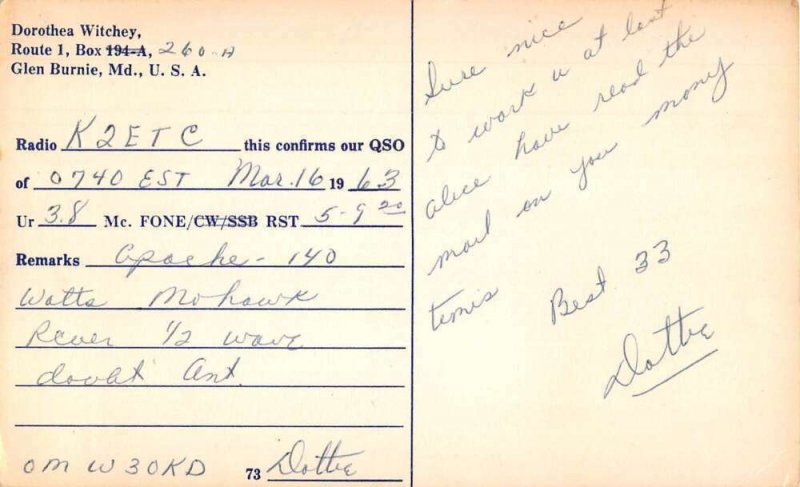 Dorothea Witchey,
Route 1, Box 194-A, 260-A
Glen Burnie, Md., U. S. A.
Radio K2ETC this confirms our QSO
of 0740 EST Mar. 16 1963
Ur 3.8 Mc. FONE/CW/SSB RST 5-9 20
Remarks Apache - 140
Watts Mohawk
Rcver 1/2 wave
doublt Ant.
OM W3OKD 73 Dottie
Sure nice
to work u at last
Alice have read the
mail on you many
times Best 33
Dottie